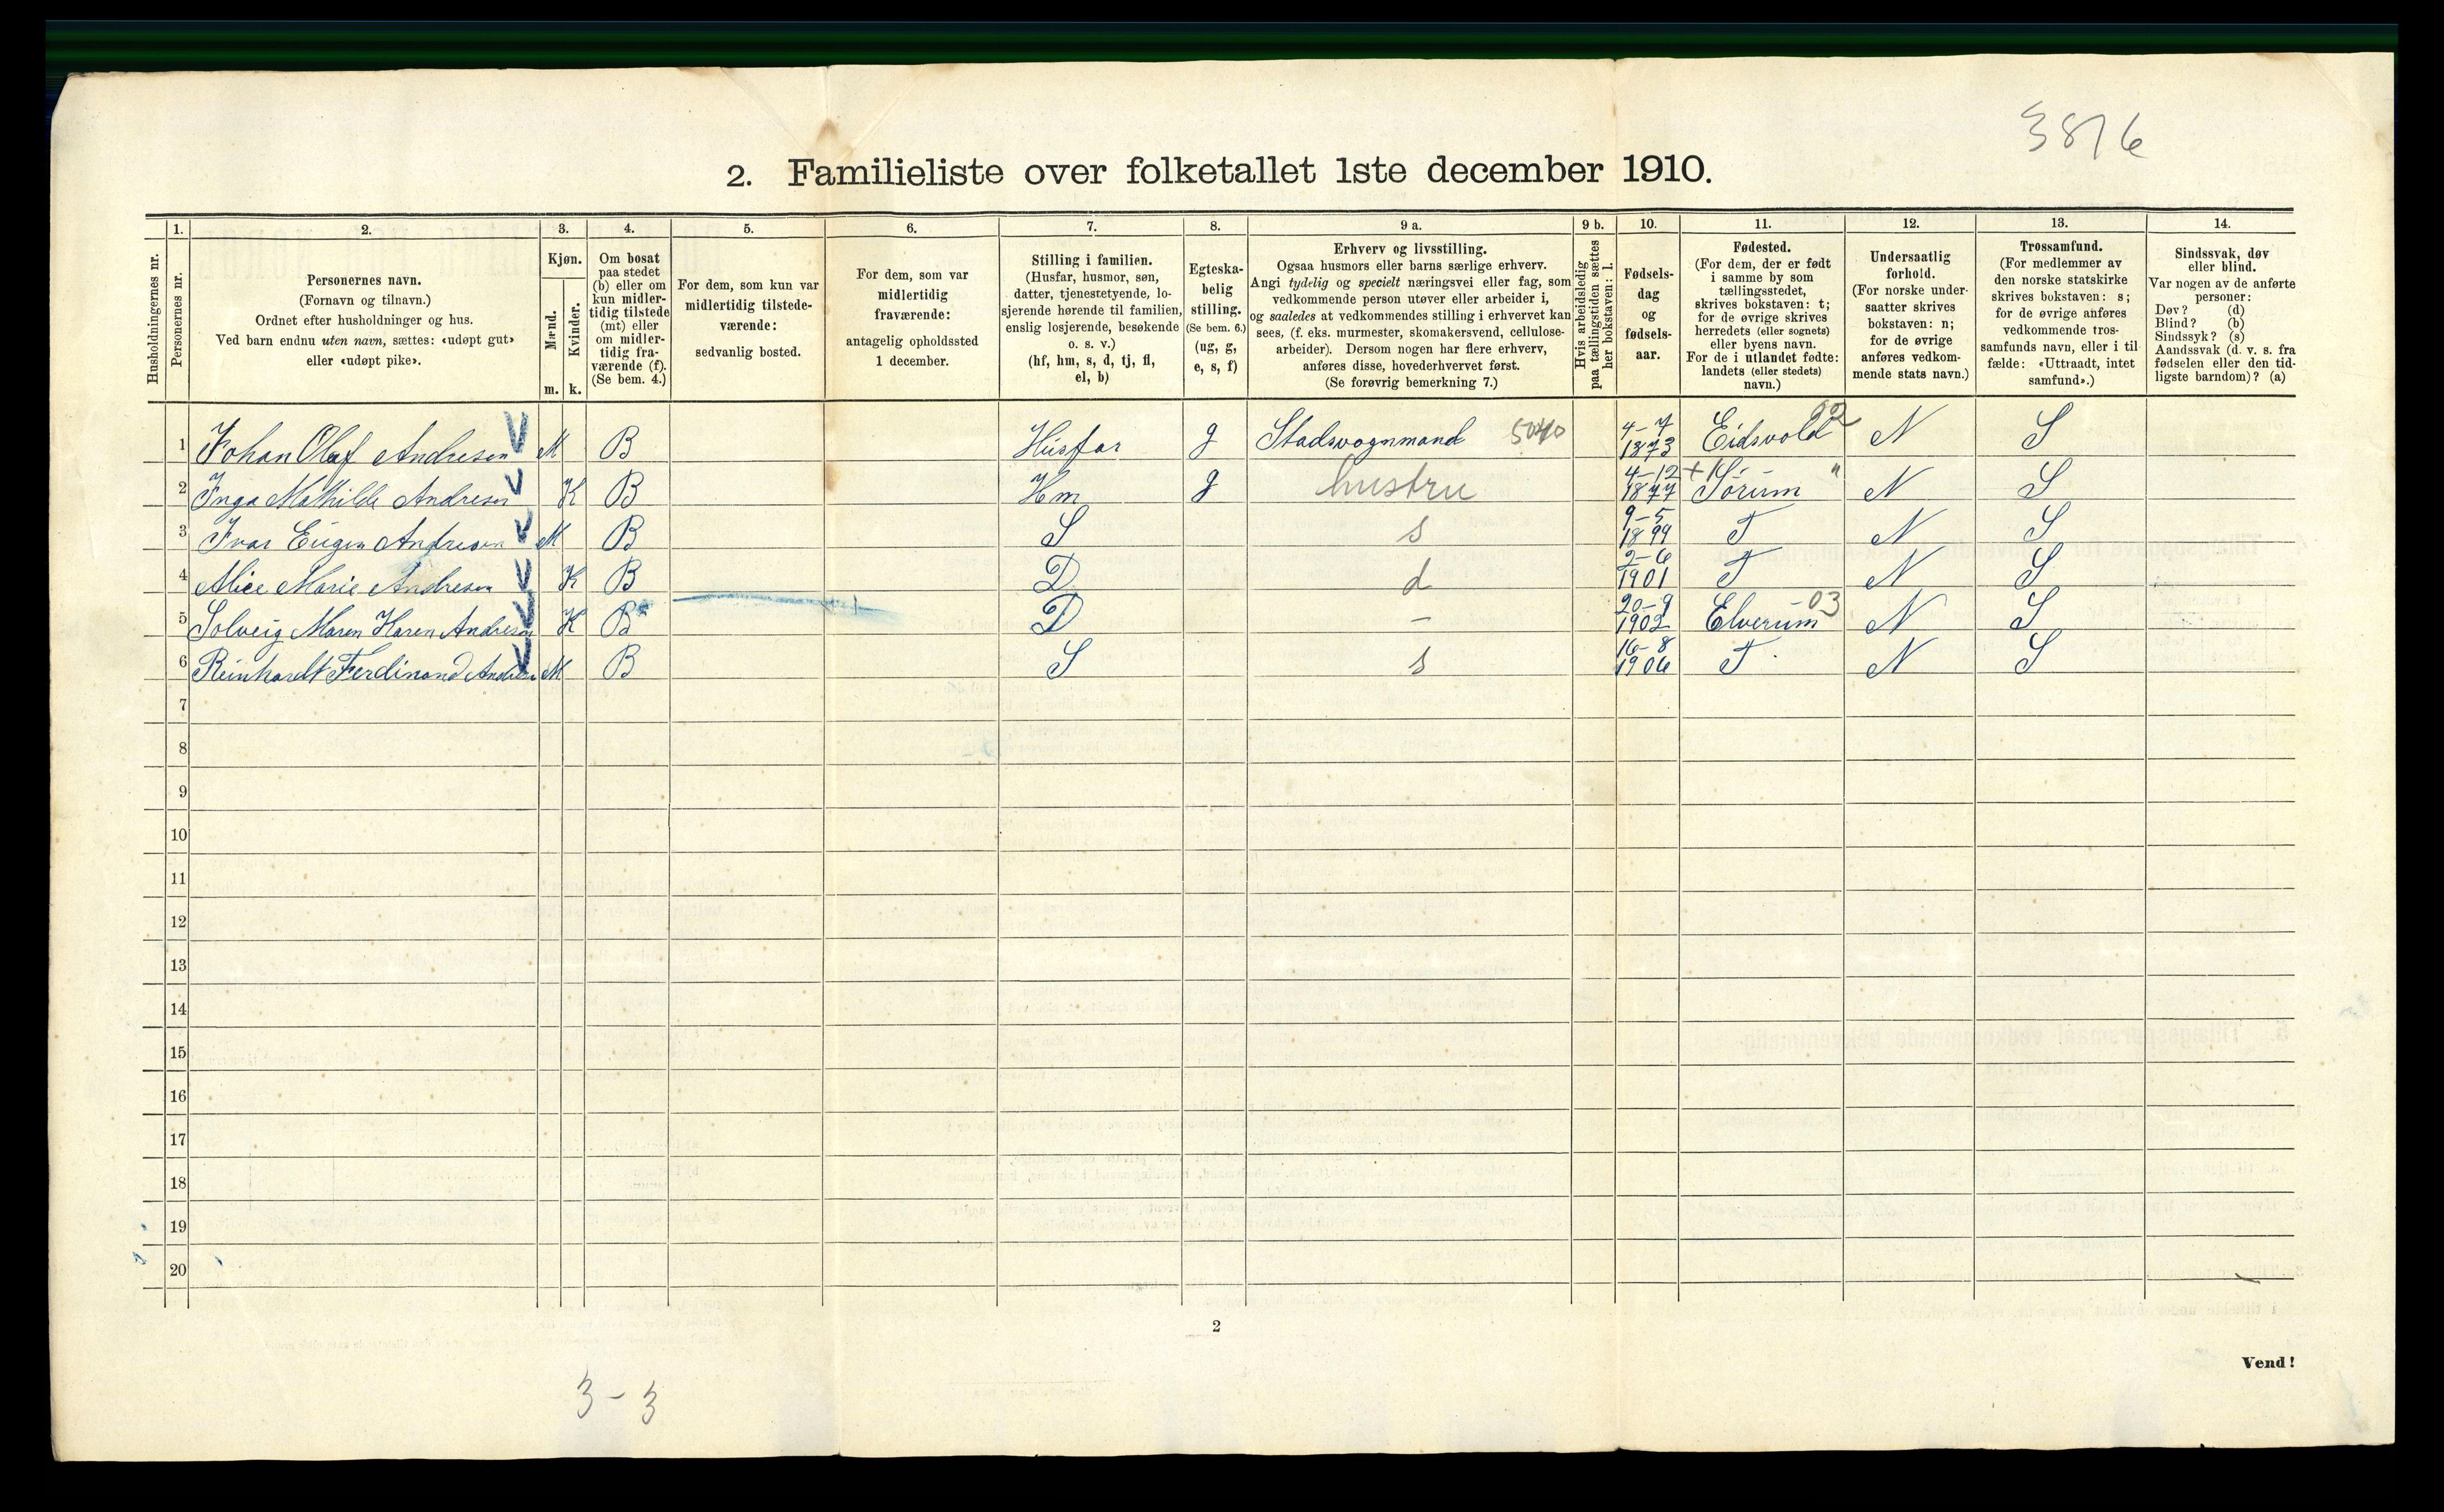 3876
2. Familieliste over folketallet 1ste december 1910.
Husholdningernes nr.
1. Personernes nr.
2. Personernes navn.
(Fornavn og tilnavn.)
Ordnet efter husholdninger og hus.
Ved barn endnu uten navn, sættes: «udøpt gut»
eller «udøpt pike».
3. Kjøn.
Mænd. m.
Kvinder. k.
4. Om bosat
paa stedet
(b) eller om
kun midler-
tidig tilstede
(mt) eller
om midler-
tidig fra-
værende (f).
(Se bem. 4.)
5. For dem, som kun var
midlertidig tilstede-
værende:
sedvanlig bosted.
6. For dem, som var
midlertidig
fraværende:
antagelig opholdssted
1 december.
7. Stilling i familien.
(Husfar, husmor, søn,
datter, tjenestetyende, lo-
sjerende hørende til familien,
enslig losjerende, besøkende
o. s. v.)
(hf, hm, s, d, tj, fl,
el, b)
8. Egteska-
belig
stilling.
(Se bem. 6.)
(ug, g,
e, s, f)
9 a. Erhverv og livsstilling.
Ogsaa husmors eller barns særlige erhverv.
Angi tydelig og specielt næringsvei eller fag, som
vedkommende person utøver eller arbeider i,
og saaledes at vedkommendes stilling i erhvervet kan
sees, (f. eks. murmester, skomakersvend, cellulose-
arbeider). Dersom nogen har flere erhverv,
anføres disse, hovederhvervet først.
(Se forøvrig bemerkning 7.)
9 b. Hvis arbeidsledig
paa tællingstiden sættes
her bokstaven: l.
10. Fødsels-
dag
og
fødsels-
aar.
11. Fødested.
(For dem, der er født
i samme by som
tællingsstedet,
skrives bokstaven: t;
for de øvrige skrives
herredets (eller sognets)
eller byens navn.
For de i utlandet fødte:
landets (eller stedets)
navn.)
12. Undersaatlig
forhold.
(For norske under-
saatter skrives
bokstaven: n;
for de øvrige
anføres vedkom-
mende stats navn.)
13. Trossamfund.
(For medlemmer av
den norske statskirke
skrives bokstaven: s;
for de øvrige anføres
vedkommende tros-
samfunds navn, eller i til-
fælde: «Uttraadt, intet
samfund».)
14. Sindssvak, døv
eller blind.
Var nogen av de anførte
personer:
Døv? (d)
Blind? (b)
Sindssyk? (s)
Aandssvak (d. v. s. fra
fødselen eller den tid-
ligste barndom)? (a)
1 Johan Olaf Andresen M B Husfar g Stadsvognmand 5040 4-7 1873 Eidsvold 02 N S
2 Inga Mathilde Andresen K B Hm g hustru 4-12 1877 Sørum " N S
3 Ivar Eugen Andresen M B S s 9-5 1899 T N S
4 Alice Marie Andresen K B D d 2-6 1901 T N S
5 Solveig Maren Karen Andresen K B D - 20-9 1902 Elverum -03 N S
6 Reinhardt Ferdinand Andresen M B S s 16-8 1906 T N S
7
8
9
10
11
12
13
14
15
16
17
18
19
20
2
Vend!
3-3